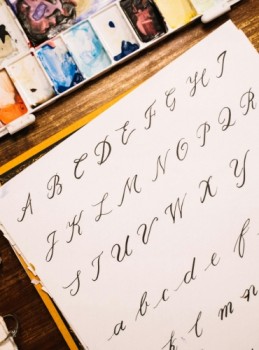 A B C D E F G H I
J K L M N O P Q R
S T U V W X Y
a b c d e f
k l m n